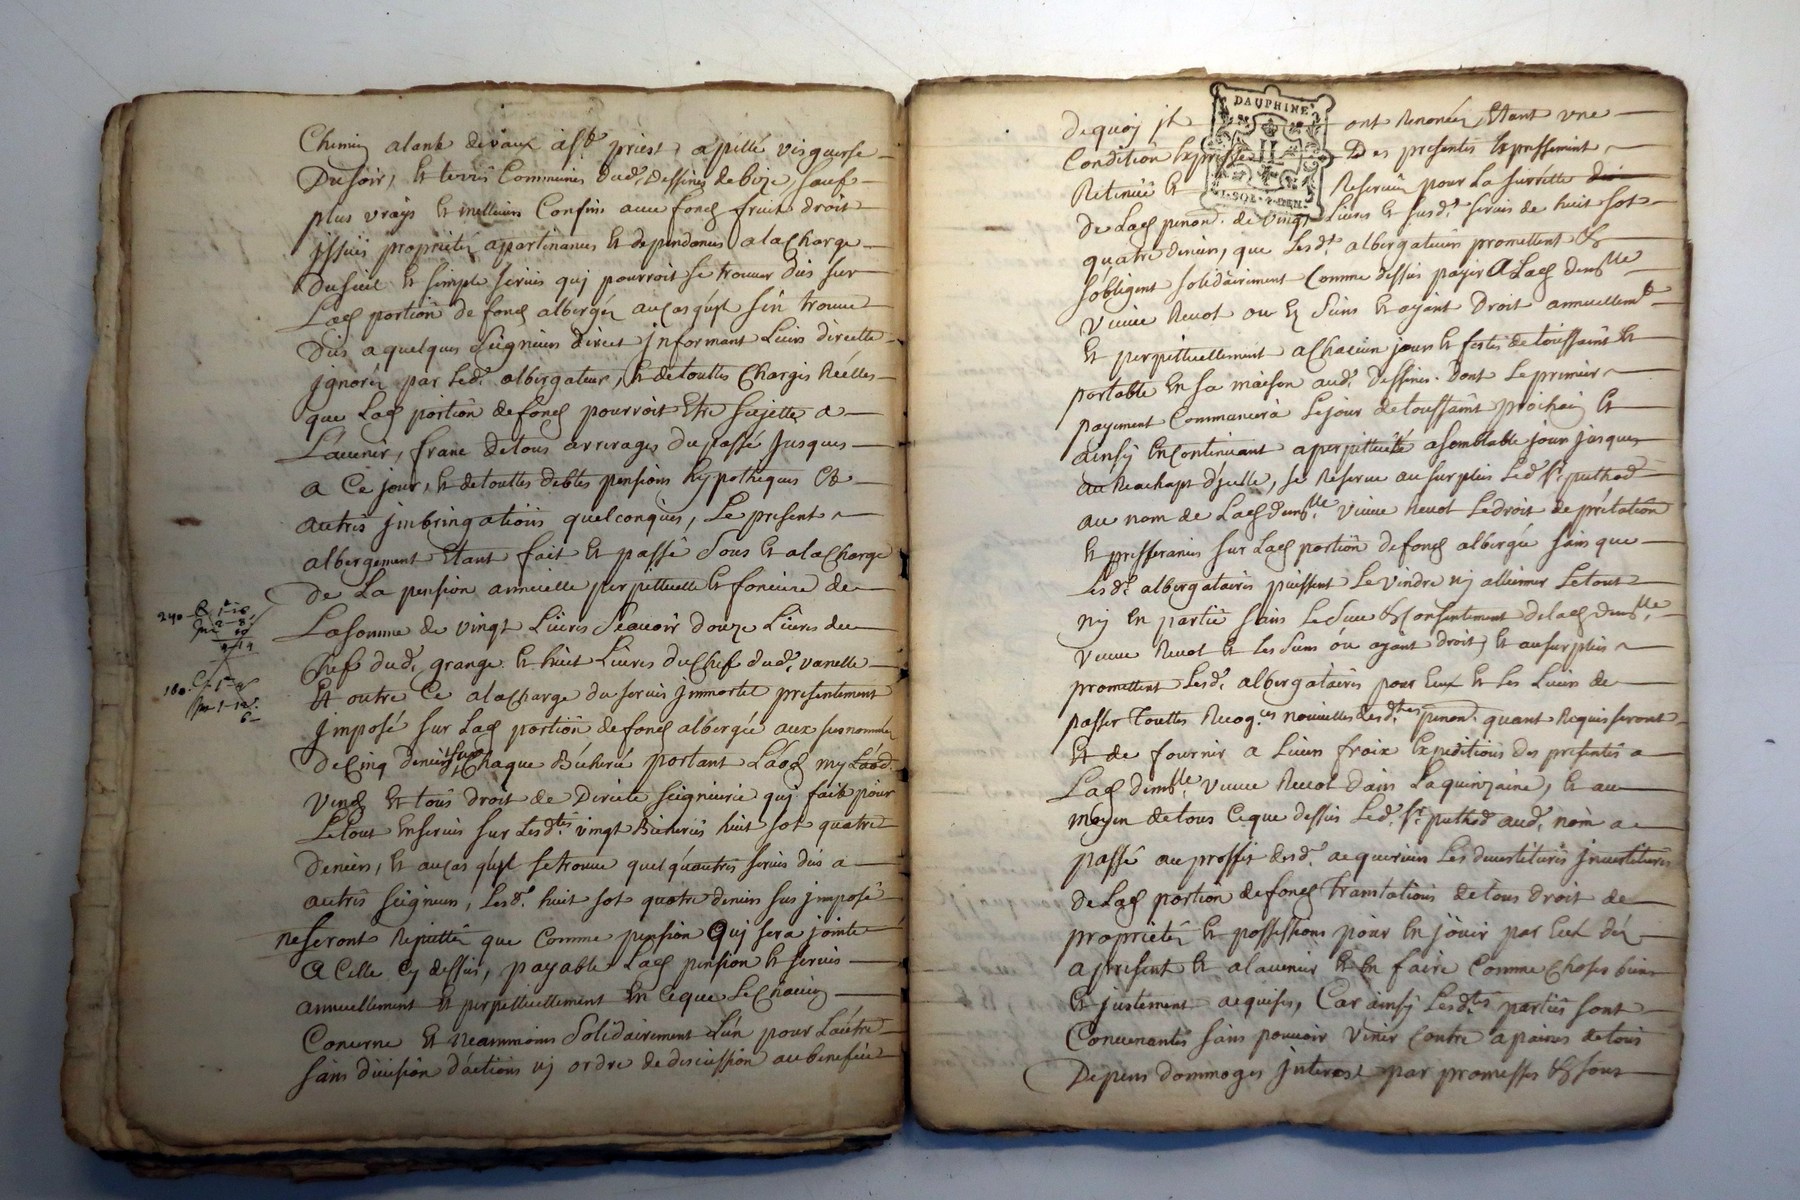 Chemin alant de vaux a St priest apellé visquerse
Du soir, Et terres Communes dud. Dessines de bize, sauf
plus vrays Et meilleurs Confins avec fonds fruit droit
jssues proprietés appartenances Et dependances a la Charge
Du seul Et simple servis quj pourroit se trouver dus sur
Lad portion de fonds albergés au cas qu'yl s'en trouve
Dus a quelques seigneurs direct jnformant Leurs directe
jgnorés par Led. albergateur, Et de touttes Charges Réelles
que Lad portion de fonds pourroit Etre sujette a
L'avenir, franc de tous arrerages du passé Jusques
a Ce jour, Et de touttes debtes pensions hypotheques Et
autres jmbringations quelconques, Le present
albergement Etant fait Et passé sous Et a la Charge
De La pension annuelle perpettuelle Et fonciere de
La somme de vingt Livres Scavoir douze Livres du
Chef dud. grange Et huit Livres du Chef dud. vanelle
Et outre Ce a la Charge du servis jmmortel presentement
jmposé sur Lad portion de fonds albergée aux susnommés
De Cinq deniers sur Chaque Bicherée portant Laod my Laod.
Vends Et tous droit de Directe seigneurie quj fait pour
Le tout En servis sur Lesdtes vingt Bicherées huit sol quatre
Deniers, Et au cas qu'yl se trouve quelqu'autres servis dus a
autres seigneurs, Lesd. huit sol quatre deniers sus jmposé
ne seront Reputtés que Comme pension Quj sera jointe
a Celle Cy dessus, payable Lad pension Et servis
annuellement Et perpettuellement En Ce que Le Chacun
Concerne Et Neammoins Solidairement L'un pour L'autre
sans division d'actions nj ordre de discussion au benefice
240
180
de quoj jls ont Renoncés, Etant une
Condition Expresse Des presentes Expressement
Retenüe Et Reservée pour La surrette
De Lad pension. de vingt Livres Et susd. servis de huit sol
quatre deniers, que Lesdt albergateurs promettent Et
s'obligent solidairement Comme dessus payer a Lad demlle
Veuve Revot ou Es siens Et ayant Droit annuellemt
Et perpettuellement a Chacun jours Et festes de toussaint Et
portable En sa maison aud. Dessines. Dont Le premier
payement Commancera Le jour de toussaint prochain Et
ainsy En Continuant a perpettuité a semblable jour Jusques
au Reachapt d'jcelle, se Reserve au surplus Led Sr. puthod
au nom de Lad demlle veuve Revot Le droit de prélation
Et presserances sur Lad portion de fonds albergée sans que
Lesd. albergataires puissent Le vendre nj alliener Le tout
nj En partie sans Le sceu Et Consentement de Lad demlle
Veuve Revot Et Les siens ou ayant droit, Et au surplus
promettent Lesd. albergataires pour Eux Et Les Leurs de
passer touttes Recog.ces nouvelles desdtes pension. quant Requis seront
Et de fournir a Leurs fraix Expeditions Des presentes a
Lad demlle veuve Revot dans La quinzaine, Et au
moyen de tous Ce que dessus Led. Sr. puthod aud. nom a
passé au proffit desd. acquereurs Les devestitures jnvestitures
de Lad portion de fonds translations de tous droit de
proprietés Et possessions pour En joüir par Eux dés
a present Et a l avenir Et En faire Comme Choses bien
Et justement acquises, Car ainsy Lesdtes parties sont
Convenantes sans pouvoir venir Contre a paines de tous
Depens dommages jnterest par promesses Et sous
DAUPHINE